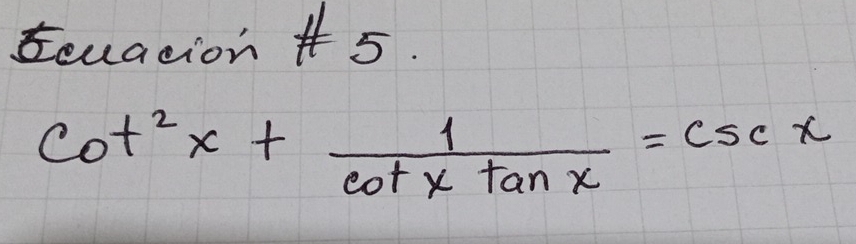 Ecuación # 5.
Cot²x + 1/(cot x tan x) = csc x